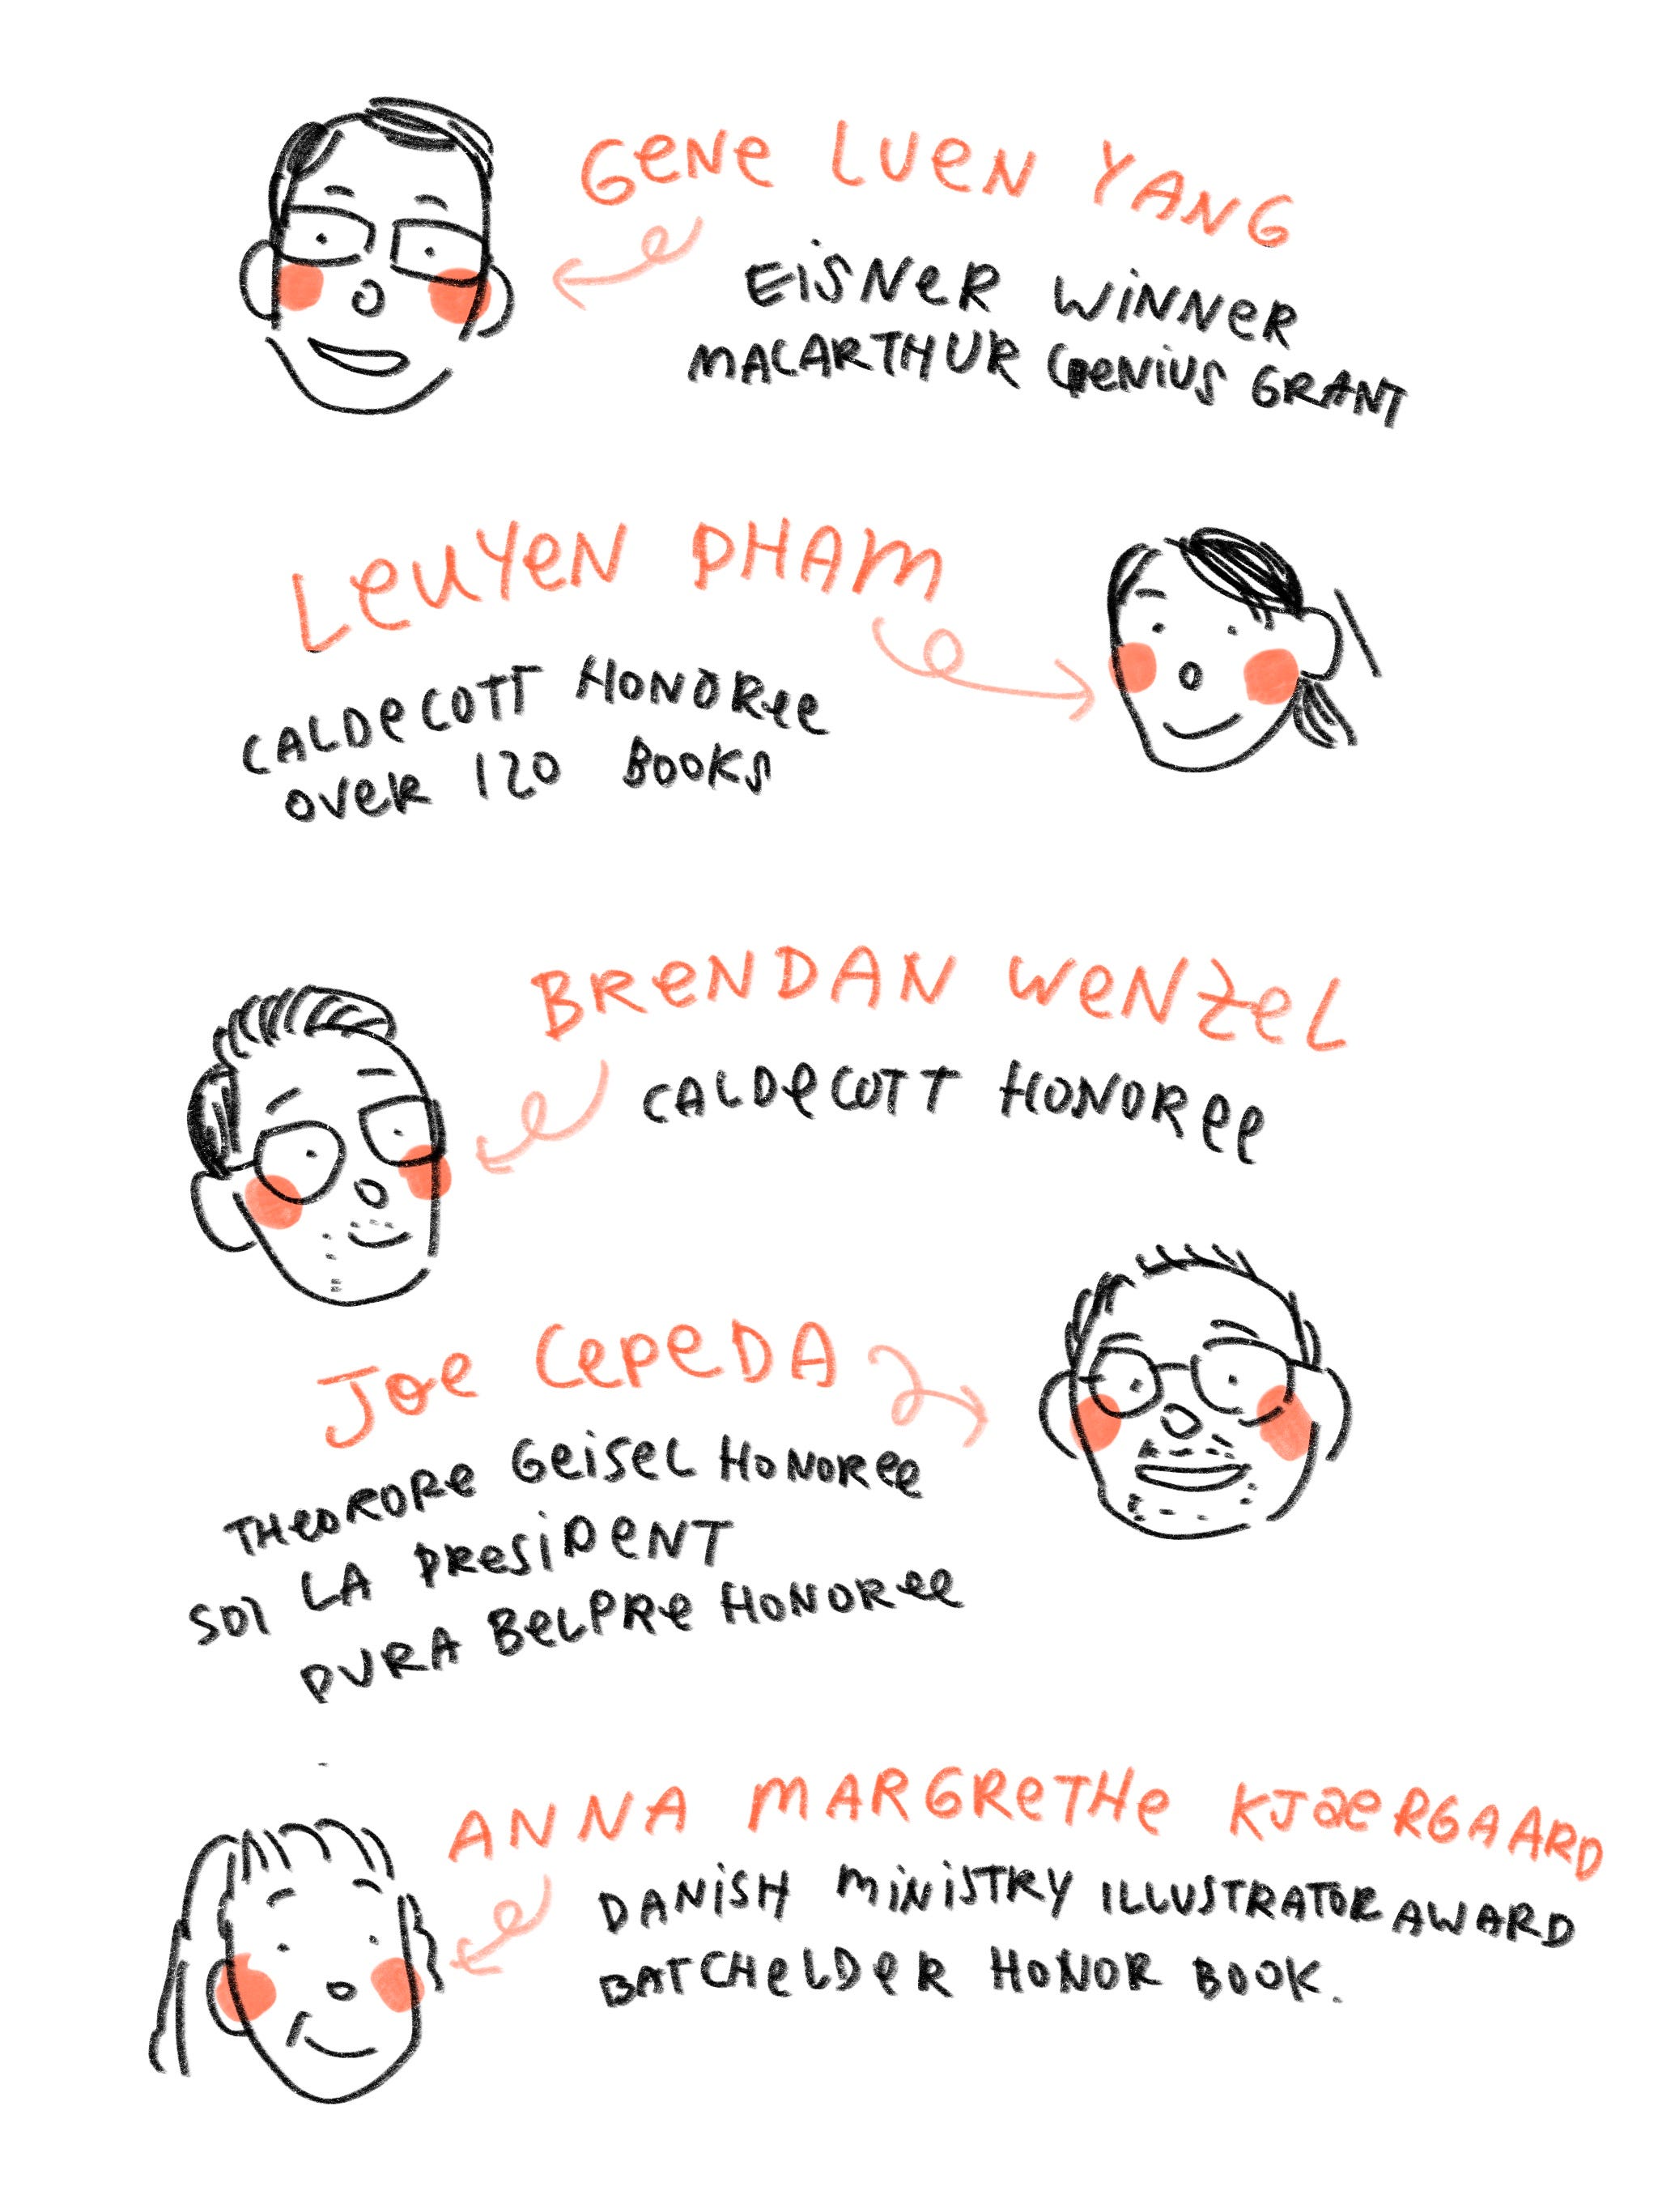 GENE LUEN YANG
EISNER WINNER
MACARTHUR GENIUS GRANT
LEUYEN PHAM
CALDECOTT HONOREE
OVER 120 BOOKS
BRENDAN WENZEL
CALDECOTT HONOREE
JOE CEPEDA
THEORORE GEISEL HONOREE
SOI LA PRESIDENT
PURA BELPRE HONOREE
ANNA MARGRETHE KJAERGAARD
DANISH MINISTRY ILLUSTRATOR AWARD
BATCHELDER HONOR BOOK.